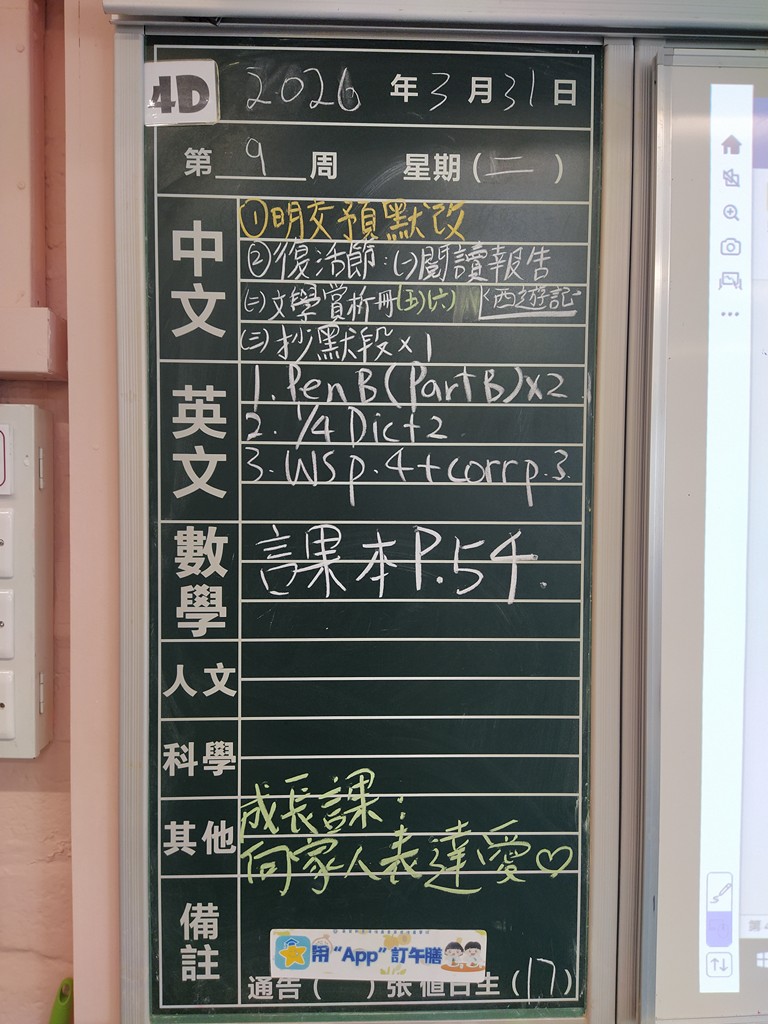 4D 2026 年 3 月 31 日
第 9 周 星期(二)
中文
①明交預默改
②復活節:(一)閱讀報告
(二)文學賞析冊(五)(六) 《西遊記
(三)抄默段×1
英文
1. Pen B (Part B) x2
2. 1/4 Dict 2
3. WS p.4 + corr p.3
數學
課本 P.54.
人文
科學
其他
成長課:
向家人表達愛♡
備註
用“App”訂午膳
通告( )張 值日生(17)